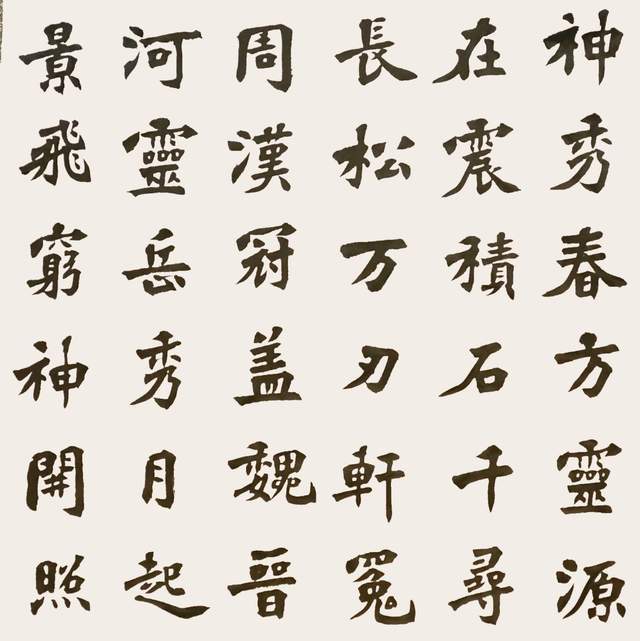 神秀春方靈源
在震積石千尋
長松万刃軒冕
周漢冠盖魏晉
河靈岳秀月起
景飛窮神開照